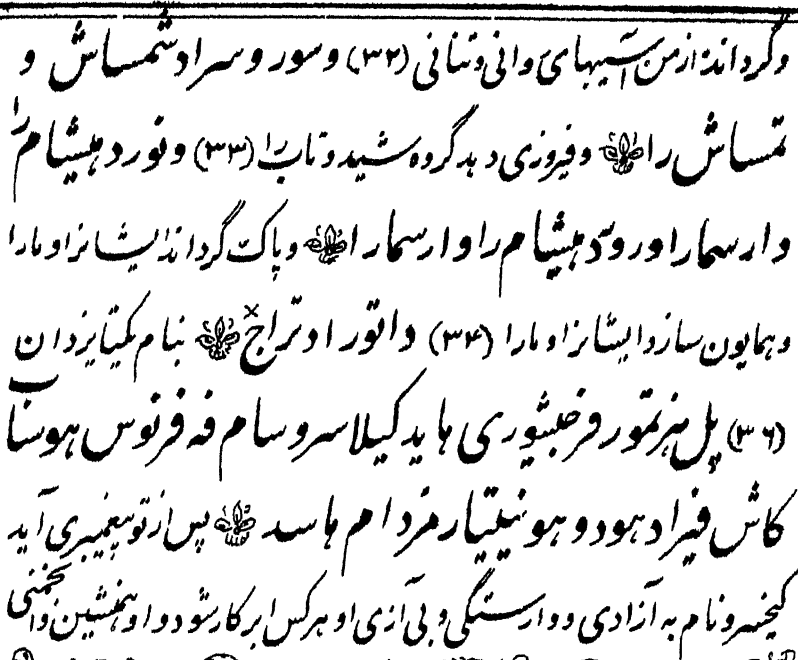 وگرداند از من آسیبهای وانی وتنانی (۳۲) وسور وسراد شمساش و
تمساش را وفیروزی دهد گروه شید و تاب را (۳۳) ونورد هیشام را
دارسمارا ورود هیشام را وارسمار ا وپاک گرداند ایشانرا ومارا
وهمایون سازد ایشانرا ومارا (۳۴) واتور ادتراج بنام یکتایزدان
(۳۶) پل هزتمور فرخشیوری هاید کیلاسروسام فه فرنوس هوسناب
کاش فیراد هودو هونیتیار مزدام هاسد پس از تو پیغمبری آید
کیخسرونام به آزادی ووارستگی وبی آزی او هرکس ابرکار شود واوهمنشین